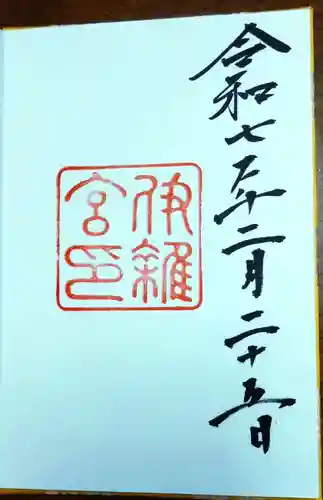 令和七年十二月二十五日
伊雜
宮印